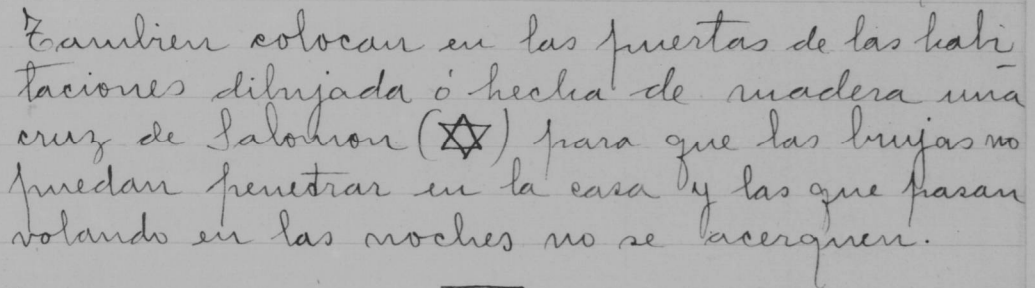 Tambien colocan en las puertas de las habi-
taciones dibujada ó hecha de madera una
cruz de Salomon (✡) para que las brujas no
puedan penetrar en la casa y las que pasan
volando en las noches no se acerquen.